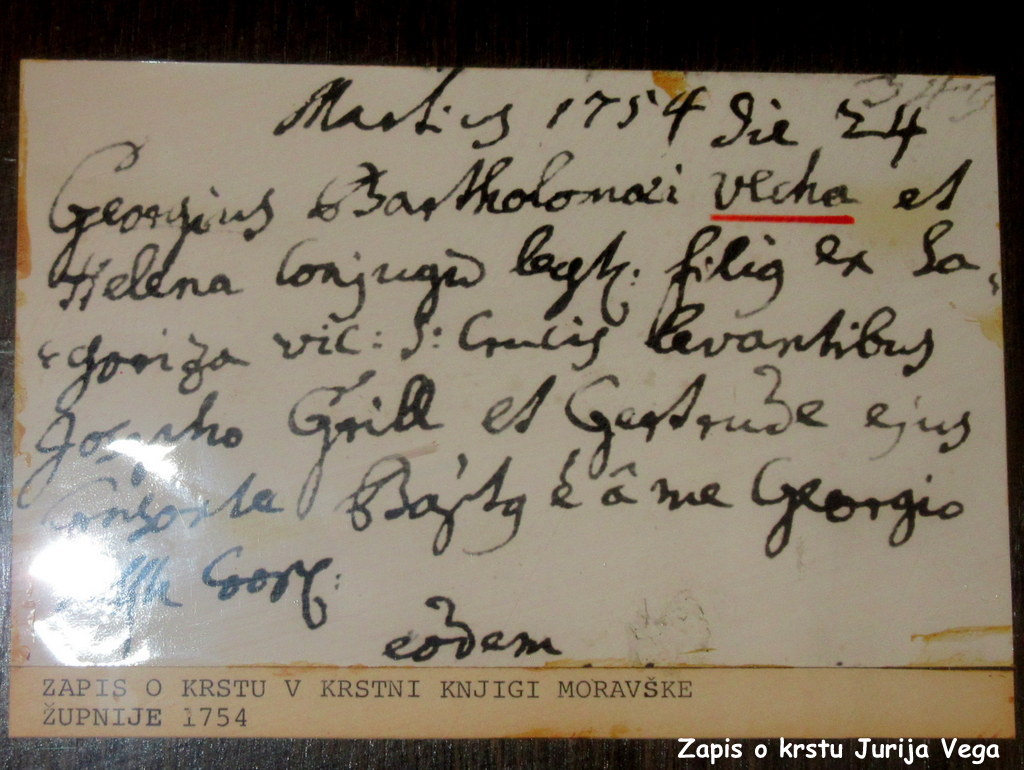 Martius 1754 die 24
Georgius Bartholomæi Vecha et
Helena Conjugū legt: filiq ex Sa-
goriza vic: S: Crucis levantibus
Josepho Grill et Gertrude ejus
Consorte Baptq ē â me Georgio
Coop:
eodem
ZAPIS O KRSTU V KRSTNI KNJIGI MORAVŠKE
ŽUPNIJE 1754
Zapis o krstu Jurija Vega